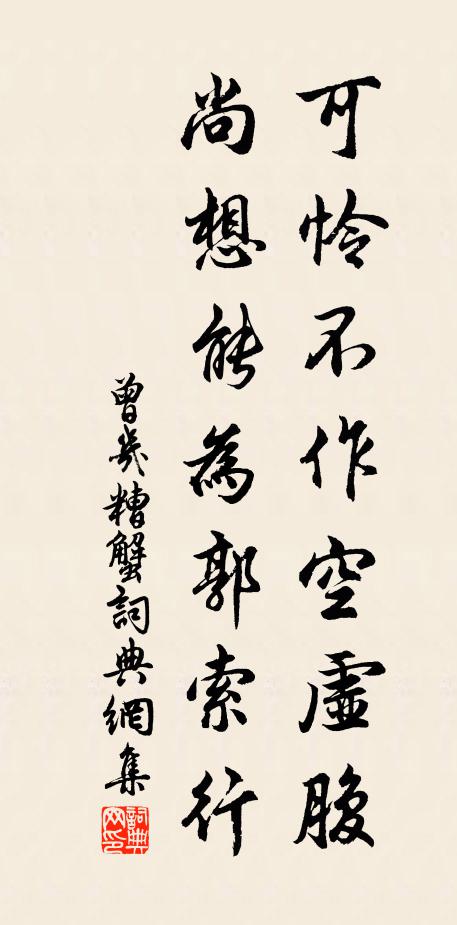 可怜不作空虚腹
尚想能為郭索行
曾幾糟蟹詞典網集
詞典网印